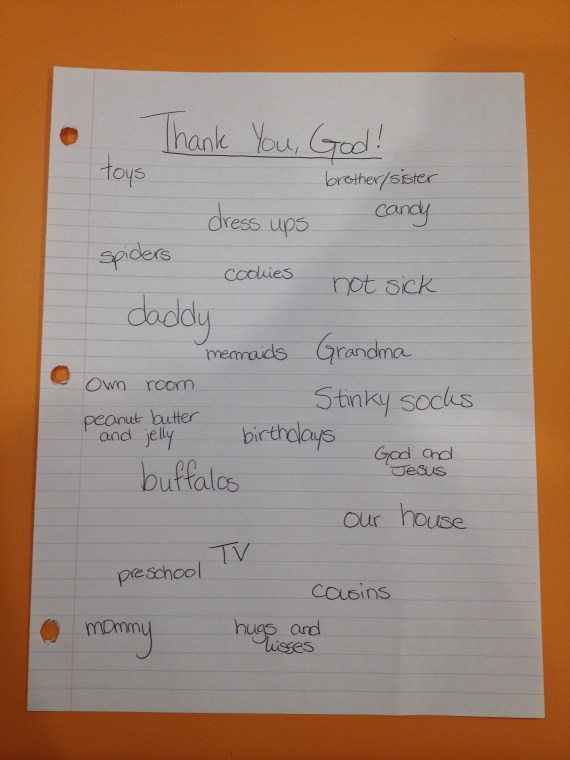 Thank You, God!
toys
brother/sister
dress ups
candy
spiders
cookies
not sick
daddy
mermaids
Grandma
own room
Stinky socks
peanut butter
and jelly
birthdays
God and
Jesus
buffalos
our house
TV
preschool
cousins
mommy
hugs and
kisses